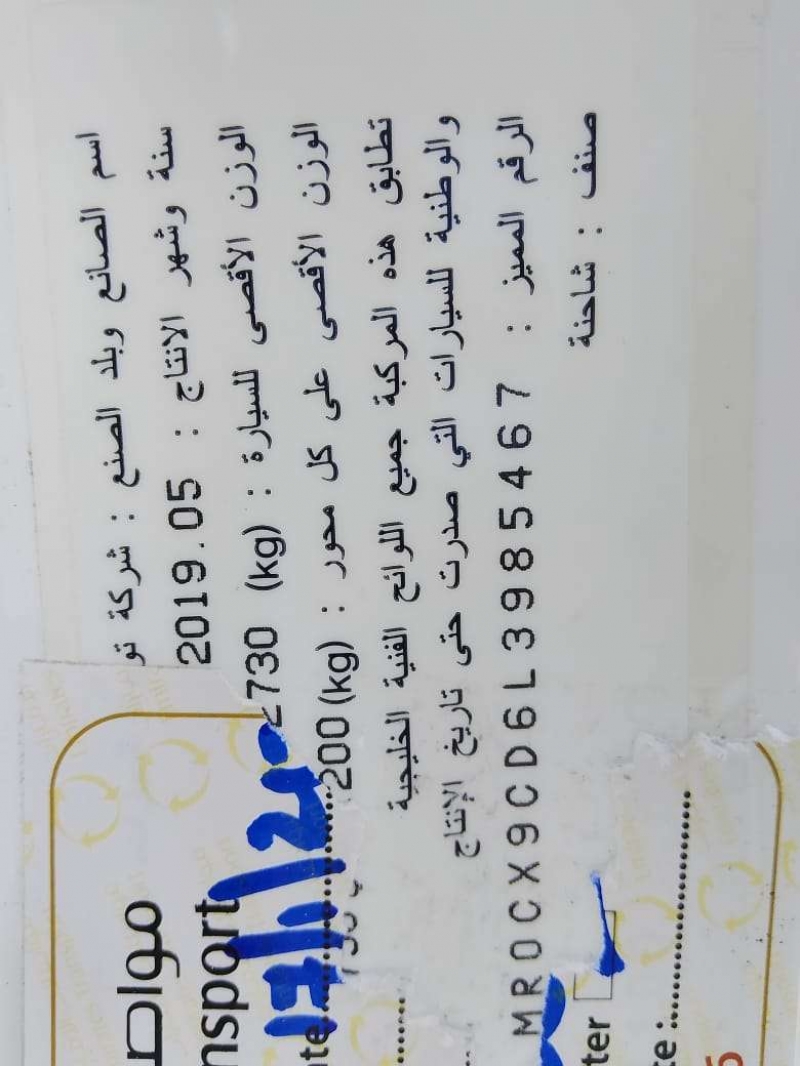 اسم الصانع وبلد الصنع : شركة تو
سنة وشهر الانتاج : 2019.05
الوزن الأقصى للسيارة : (kg) 2730
الوزن الأقصى على كل محور : (kg) 200
تطابق هذه المركبة جميع اللوائح الفنية الخليجية
والوطنية للسيارات التي صدرت حتى تاريخ الإنتاج
الرقم المميز : MR0CX9CD6L3985467
صنف : شاحنة
مواص
nsport
te
ter
te: